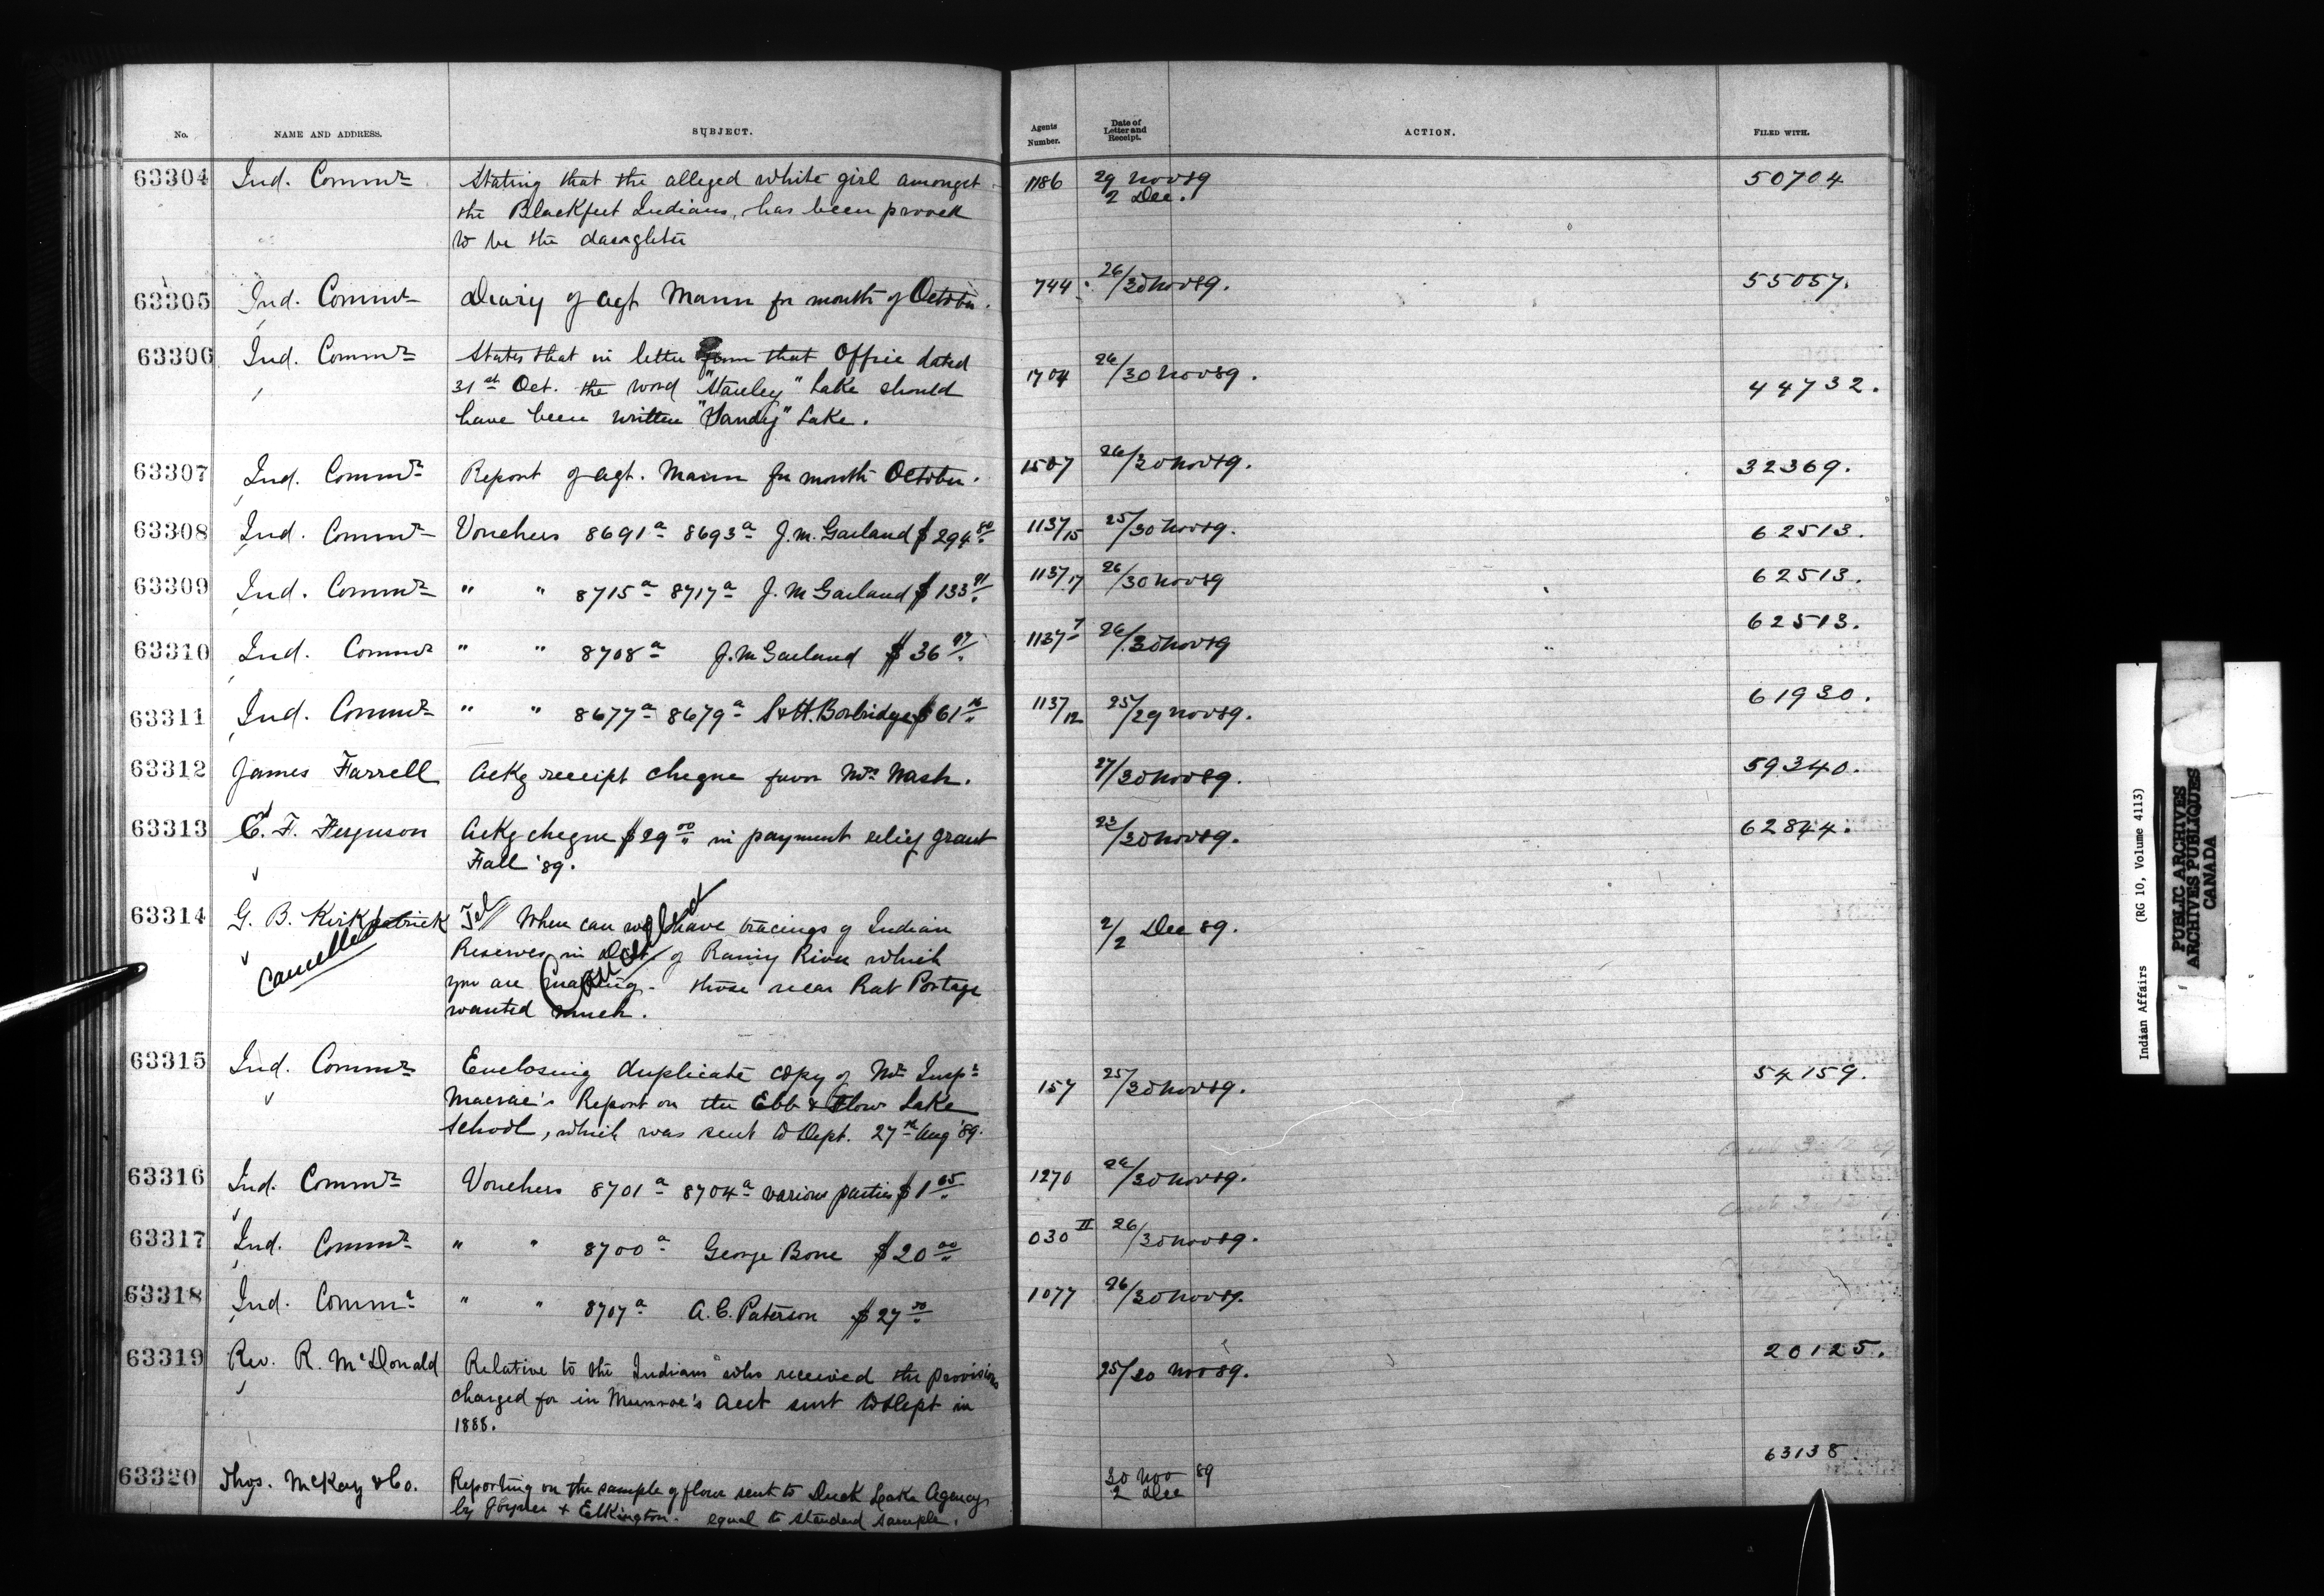 No. NAME AND ADDRESS. SUBJECT. Agents Number. Date of Letter and Receipt. ACTION. FILED WITH.
63304 Ind. Commr Stating that the alleged white girl amongst 1186 29 Nov 89 50704
the Blackfeet Indians, has been proved 2 Dec.
to be the daughter
63305 Ind. Commr Diary of agt Mann for month of October. 744 26/30 Nov 89. 55057.
63306 Ind. Commr States that in letter from that Office dated
31st Oct. the word "Stanley" Lake should 1704 26/30 Nov 89. 44732.
have been written "Sandy" Lake.
63307 Ind. Commr Report of agt. Mann for month October. 1507 26/30 Nov 89. 32369.
63308 Ind. Commr Vouchers 8691a 8693a J.M. Garland $294 80 1137/15 25/30 Nov 89. 62513.
63309 Ind. Commr " " 8715a 8717a J.M Garland $133 91 1137/17 26/30 Nov 89 62513.
63310 Ind. Commr " " 8708a J.M Garland $36 97 1137 7 26/30 Nov 89 62513.
63311 Ind. Commr " " 8677a 8679a S&H. Borbridge $61 16 1137/12 25/29 Nov 89. 61930.
63312 James Farrell Ackg receipt cheque favor Mrs Nash. 27/30 Nov 89. 59340.
63313 E. F. Ferguson Ackg cheque $29 00 in payment relief grant 23/30 Nov 89. 62844.
Fall '89.
63314 G. B. Kirkpatrick Tel/ When can we have tracings of Indian 2/2 Dec 89.
Cancelled Reserves in Dist. of Rainy River which
Cancelled
you are making. those near Rat Portage
wanted much.
63315 Ind. Commr Enclosing duplicate copy of Mr Inspr 157 25/30 Nov 89. 54159.
Macrae's Report on the Ebb & Flow Lake
School, which was sent to Dept. 27th Aug '89.
63316 Ind. Commr Vouchers 8701a 8704a various parties $1 05 1270 26/30 Nov 89.
63317 Ind. Commr " " 8700a George Bone $20 00 030 II 26/30 Nov 89.
63318 Ind. Commr " " 8707a A.C. Paterson $27 50 1077 26/30 Nov 89.
63319 Rev. R. McDonald Relative to the Indians who received the provisions 25/30 Nov 89. 20125.
charged for in Munroe's acct sent to Dept in
1888.
63320 Thos. McKay & Co. Reporting on the sample of flour sent to Duck Lake Agency 30 Nov 89 63138
by Joyner & Elkington. equal to standard sample. 2 Dec
Indian Affairs (RG 10, Volume 4113)
PUBLIC ARCHIVES
ARCHIVES PUBLIQUES
CANADA